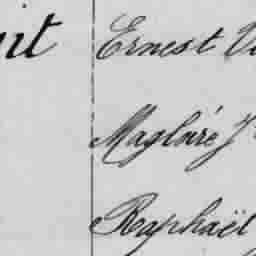 uit Ernest
Magloire
Raphaël